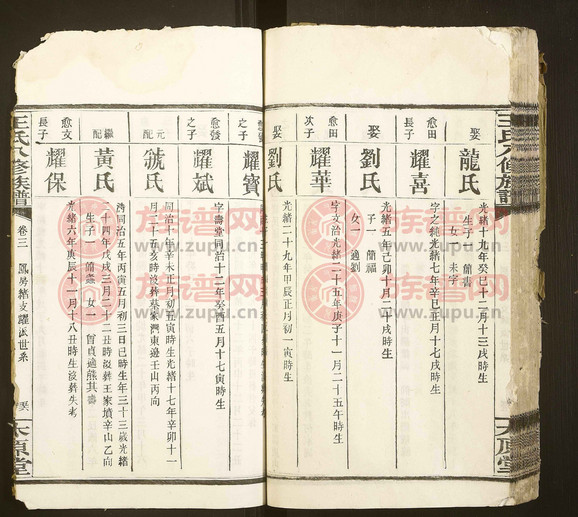 王氏八修族譜
太原堂
娶
龍氏
光緒十九年癸巳十二月十三戌時生
生子一 簡書
女一 未字
愈田
長子
耀喜
字之純光緒七年辛巳正月十七戌時生
娶
劉氏
光緒五年己卯十月二十戌時生
子一 簡福
女一 適劉
愈田
次子
耀華
字文治光緒二十五年庚子十一月二十五午時生
娶
劉氏
光緒二十九年甲辰正月初一寅時生
之子
耀寶
愈發
之子
耀斌
字壽堂同治十二年癸酉五月十七寅時生
元
配
虢氏
同治十年辛未正月初五寅時生光緒十七年辛卯十一
月二十五亥時沒葬
灣東邊壬山丙向
繼
配
黃氏
清同治五年丙寅五月初三日巳時生年三十三歲光緒
二十四年戊戌三月二十二丑時沒葬王家墳辛山乙向
生子一 簡 女一 會貞適熊其
愈文
長子
耀保
光緒六年庚辰十一月十八丑時生沒葬失考
王氏八修族譜
卷三
鳳房緒文耀派世系
太原堂
族谱网
www.zupu.cn
族谱网
www.zupu.cn